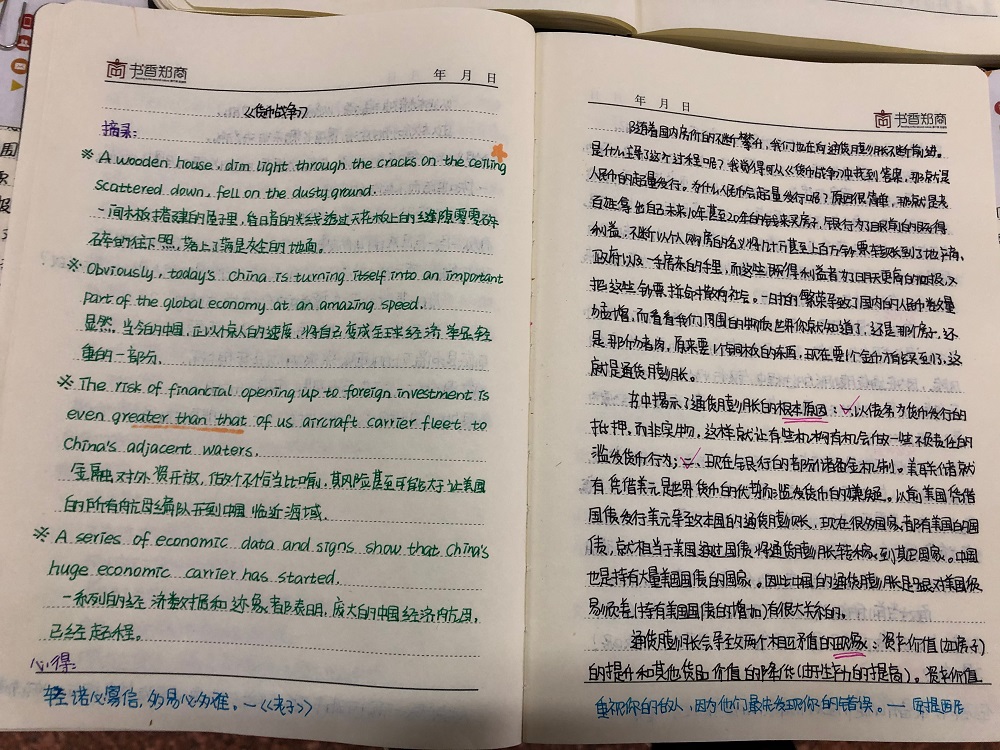 书香郑商
年 月 日
《货币战争》
摘录:
※ A wooden house, dim light through the cracks on the ceiling
scattered down, fell on the dusty ground.
一间木板搭建的屋子里,昏暗的光线透过天花板上的缝隙零零碎
碎的往下照,落上了满是灰尘的地面。
※ Obviously, today's china is turning itself into an important
part of the global economy at an amazing speed.
显然,当今的中国,正以惊人的速度,将自己变成全球经济举足轻
重的一部分。
※ The risk of financial opening up to foreign investment is
even greater than that of us aircraft carrier fleet to
China's adjacent waters.
金融对外资开放,做个不恰当比喻,其风险甚至可能大于让美国
的所有航母编队开到中国临近海域。
※ A series of economic data and signs show that china's
huge economic carrier has started.
一系列的经济数据和迹象都表明,庞大的中国经济航母,
已经起程。
心得:
轻诺必寡信,多易必多难。—《老子》
年 月 日
书香郑商
随着国内房价的不断攀升,我们也在向通货膨胀不断前进。
是什么主导了这个过程呢?我觉得可以从《货币战争》中找到答案,那就是
人民币的超量发行。为什么人民币会超量发行呢?原因很简单,那就是老
百姓拿他自己未来10年甚至20年的钱来买房子,银行为了眼前的既得
利益,不断以个人购房的名义将几十万甚至上百万钞票转账到了地产商,
政府以及一手房东的手里,而这些既得利益者为了明天更高的回报,又
把这些钞票转手撒向社会。一时的繁荣导致了国内的人民币数量
场面,而看看我们周围的物质世界你就知道了,还是那个房子,还
是那个为者肉,原来要1个铜板的东西,现在要1个金币有时候买到,这
就是通货膨胀。
书中揭示了通货膨胀的根本原因:一、以债务为货币发行的
抵押,而非实物,这样就让有些机构有机会做一些不负责任的
滥发货币行为;二、现在各银行的部分储备金机制。美联储就
有凭借美元是世界货币的优势而滥发货币的嫌疑。以前美国凭借
国债发行美元导致本国的通货膨胀,现在很多国家都有美国的国
债,就相当于美国通过国债将通货膨胀转移到其它国家。中国
也是持有大量美国国债的国家。因此中国的通货膨胀是跟对美国贸
易顺差(持有美国国债的增加)有很大关系的。
通货膨胀会导致两个相互矛盾的现象:资产价值(如房子)
的提升和其他货品价值的降低(由生产力的提高)。资产价值
重视你的敌人,因为他们最先发现你的错误。—安提西尼